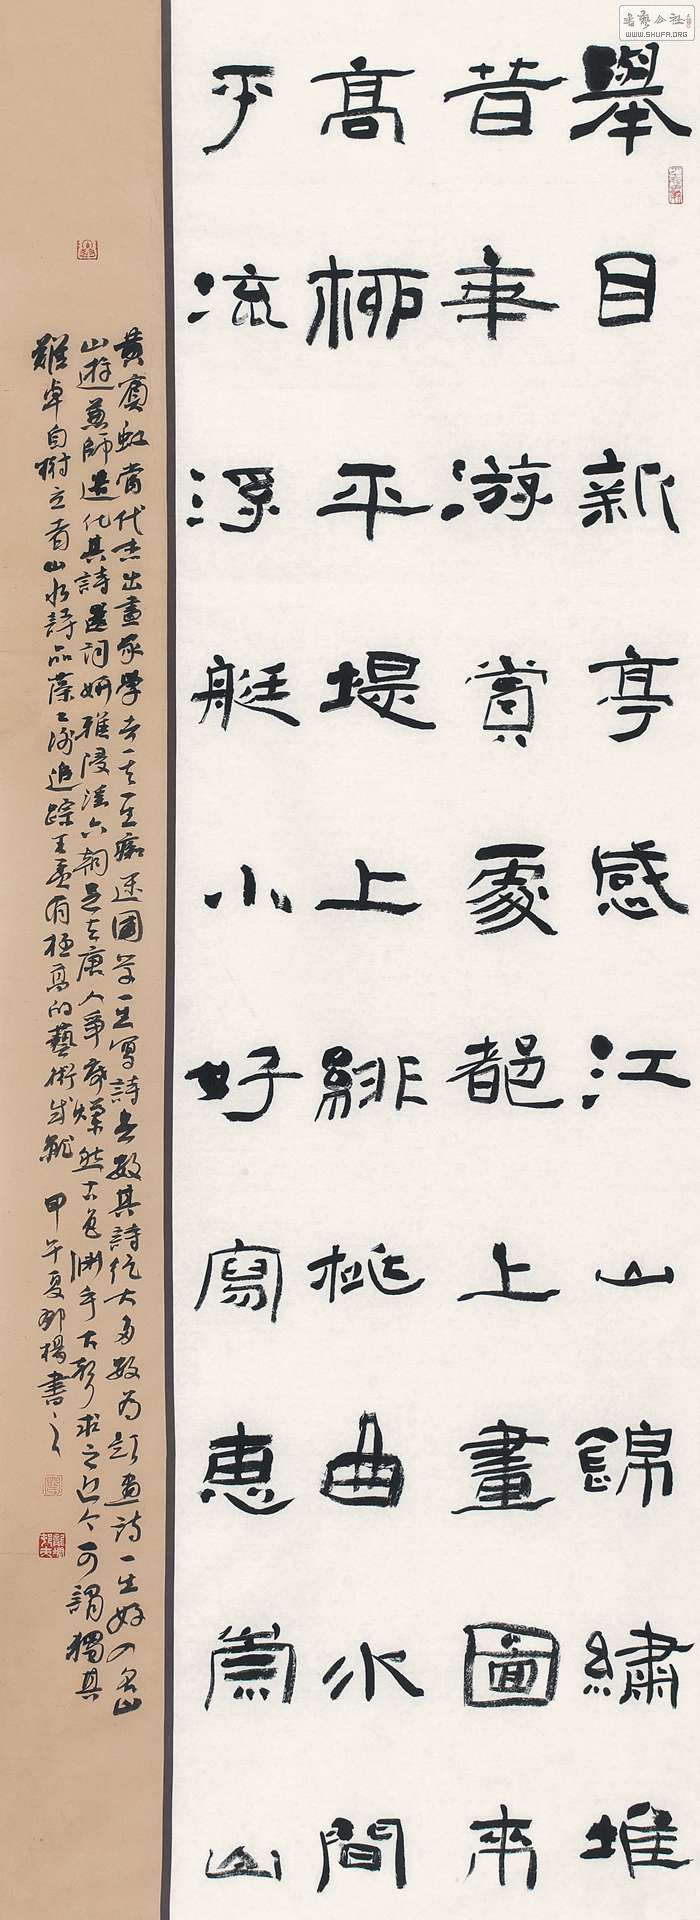 書藝公社
WWW.SHUFA.ORG
舉目新亭感江山錦繡堆
昔年游賞處都上畫圖來
高柳平堤上緋桃曲水間
平流浮艇小好寫惠崇山
黃賓虹當代杰出畫家學者一生痴迷國學一生寫詩無數其詩絕大多數為題畫詩一生好入名山
山游兼師造化其詩遣詞妍雅浸淫六朝足與唐人爭席燦然古色淵乎古聲求之近今可謂獨具
難卓自樹立者山水詩品藻之淵追踪王孟有極高的藝術成就 甲午夏鄧楊書之